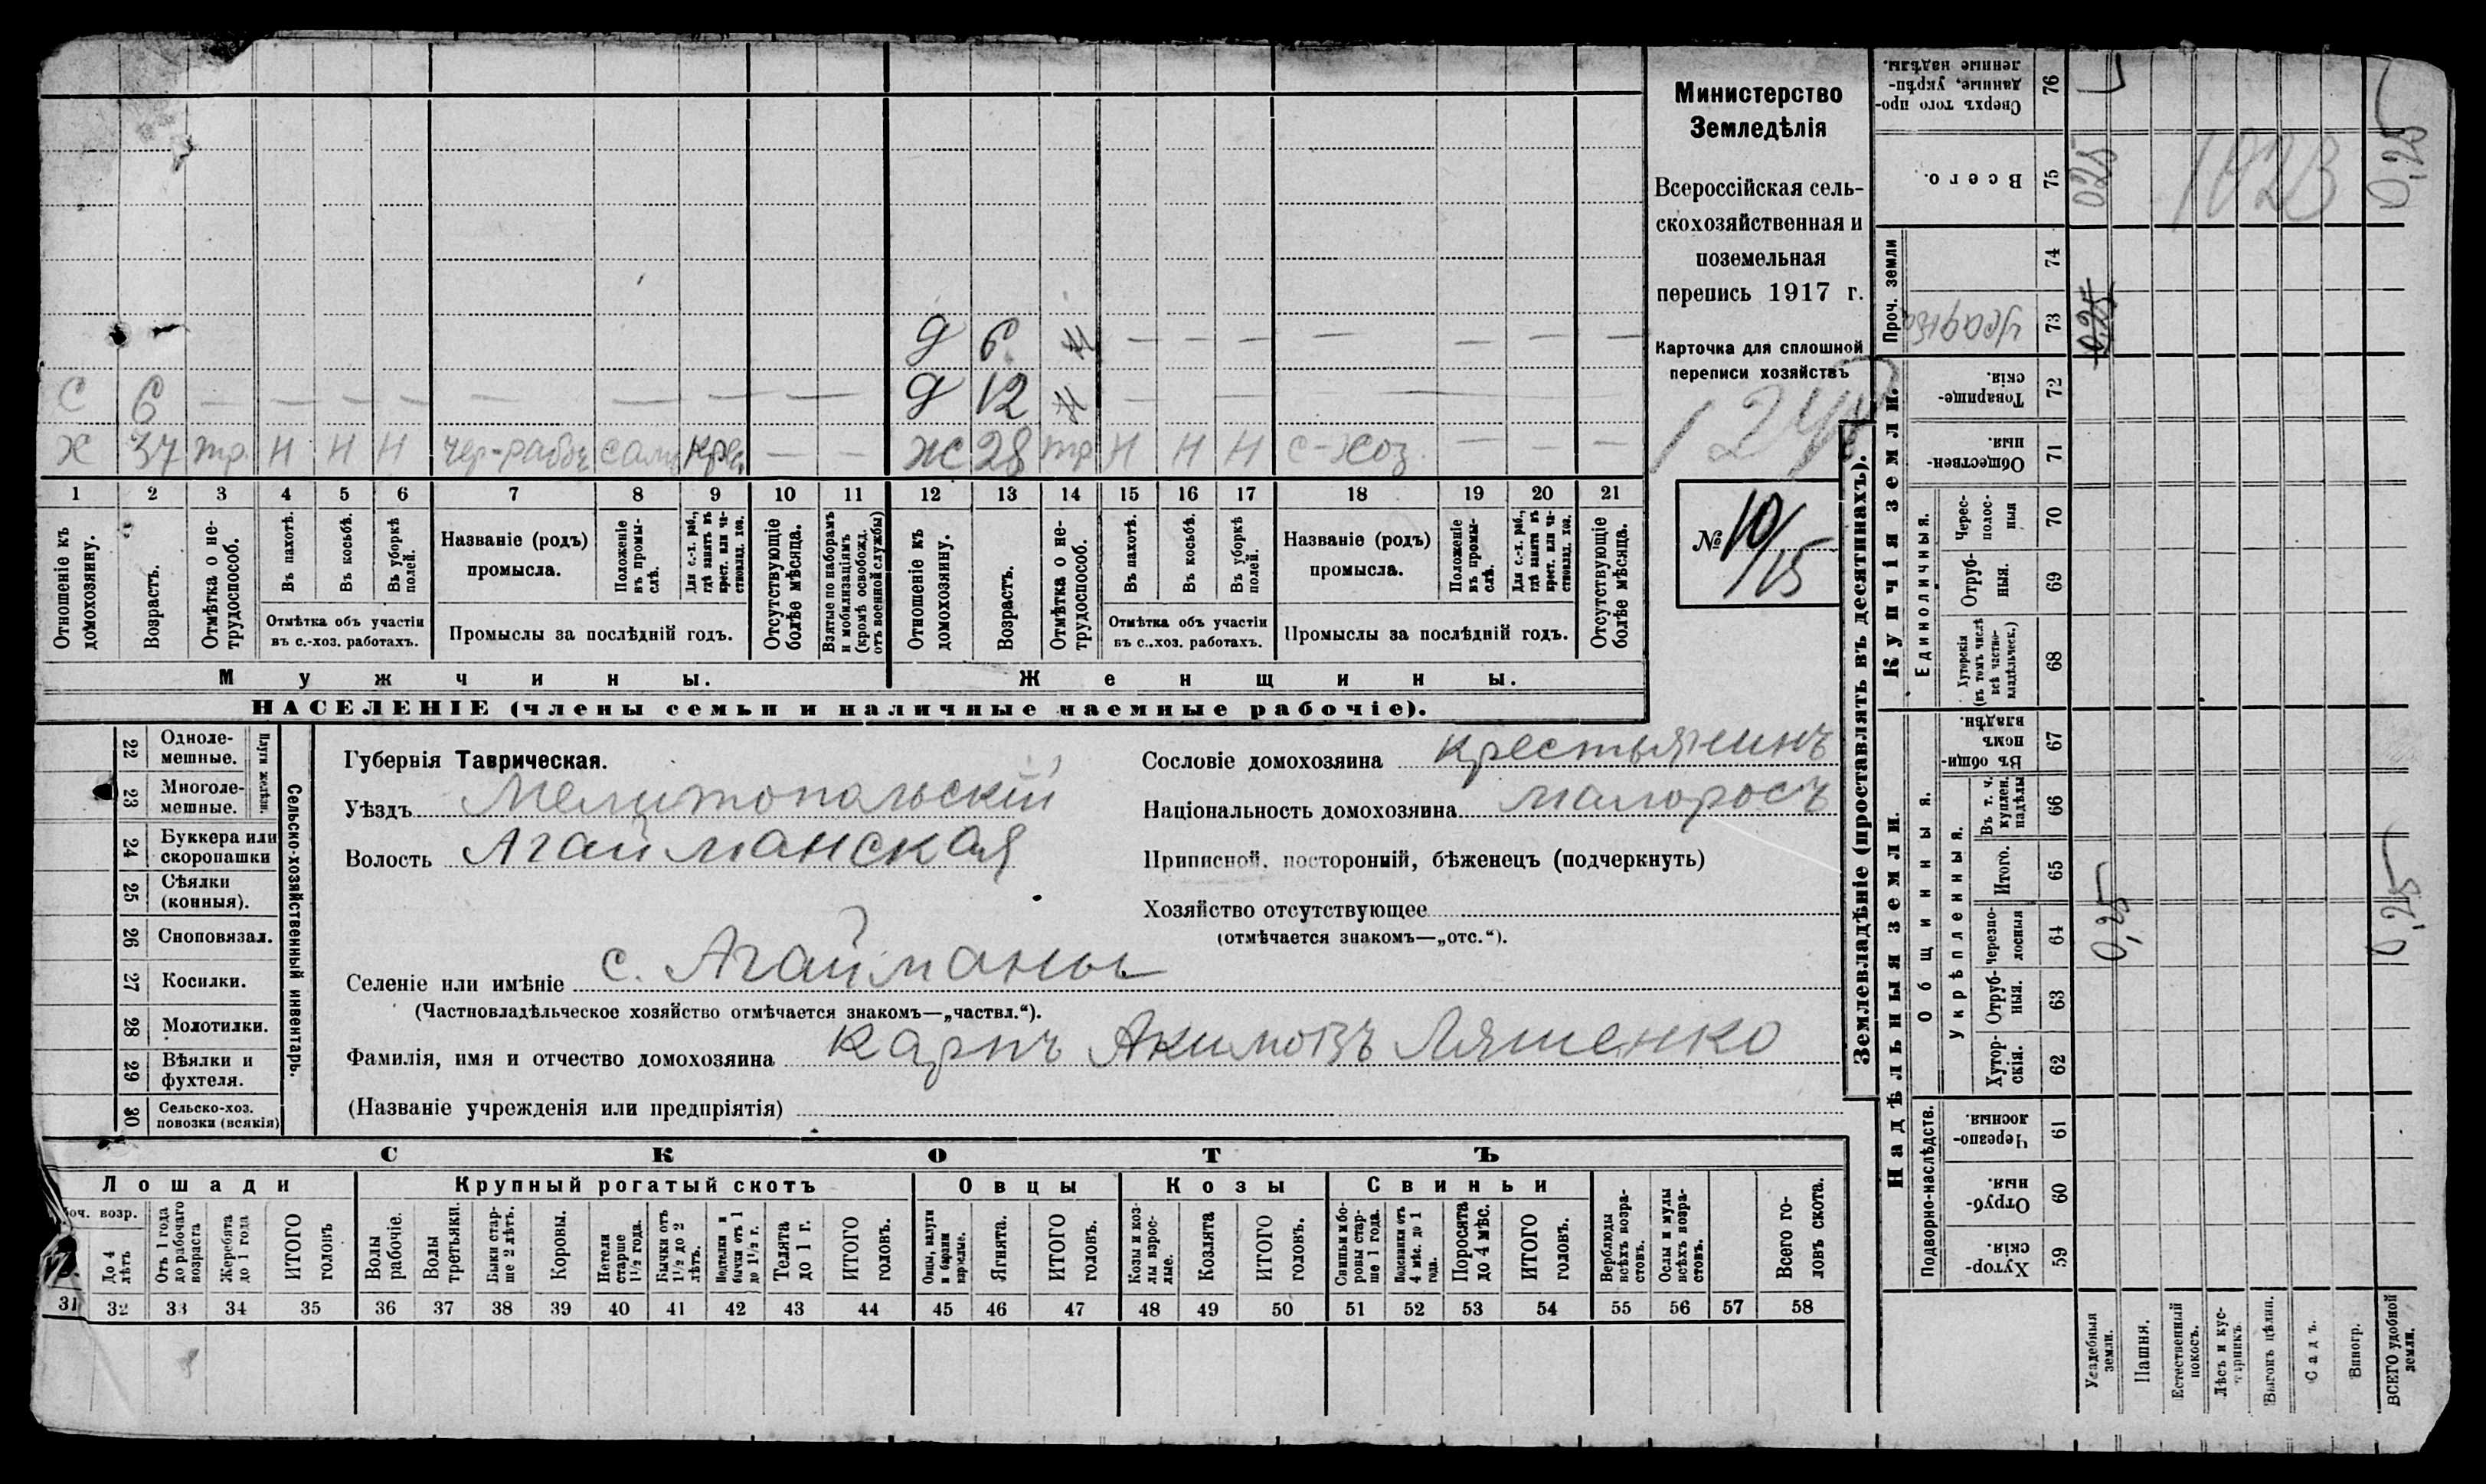 Министерство
Земледѣлія
Всероссійская сель-
скохозяйственная и
поземельная
перепись 1917 г.
Карточка для сплошной
переписи хозяйствъ
№ 10/15
д 6 н — — — — — — —
С 6 — — — — — — — — — д 12 н — — — —
Х 37 тр. Н Н Н чер-рабоч сам. крес. — — Ж 28 тр Н Н Н с-хоз. — — —
1 2 3 4 5 6 7 8 9 10 11 12 13 14 15 16 17 18 19 20 21
Отношеніе къ домохозяину.
Возрастъ.
Отмѣтка о не-трудоспособ.
Въ пахотѣ.
Въ косьбѣ.
Въ уборкѣ полей.
Отмѣтка объ участіи
въ с.-хоз. работахъ.
Названіе (родъ)
промысла.
Положеніе въ промы-слѣ.
Для с.-х. раб., гдѣ занятъ въ крест. или ча-стновлад. хоз.
Промыслы за послѣдній годъ.
Отсутствующіе болѣе мѣсяца.
Взятые по наборамъ и мобилизаціямъ (кромѣ освобожд. отъ военной службы)
Отношеніе къ домохозяину.
Возрастъ.
Отмѣтка о не-трудоспособ.
Въ пахотѣ.
Въ косьбѣ.
Въ уборкѣ полей.
Отмѣтка объ участіи
въ с..хоз. работахъ.
Названіе (родъ)
промысла.
Положеніе въ промы-слѣ.
Для с.-х. раб., гдѣ занята въ крест. или ча-стновлад. хоз.
Промыслы за послѣдній годъ.
Отсутствующіе болѣе мѣсяца.
Мужчины. Женщины.
НАСЕЛЕНІЕ (члены семьи и наличные наемные рабочіе).
Сельско-хозяйственный инвентарь.
Плуги желѣзн.
22 Одноле-мешные.
23 Многоле-мешные.
24 Буккера или скоропашки
25 Сѣялки (конныя).
26 Сноповязал.
27 Косилки.
28 Молотилки.
29 Вѣялки и фухтеля.
30 Сельско-хоз. повозки (всякія)
Губернія Таврическая.
Уѣздъ Мелитопольскій
Волость Агайманская
Сословіе домохозяина крестьянинъ
Національность домохозяина малоросъ
Приписной, посторонній, бѣженецъ (подчеркнуть)
Хозяйство отсутствующее
(отмѣчается знакомъ—„отс.“).
Селеніе или имѣніе с. Агайманы
(Частновладѣльческое хозяйство отмѣчается знакомъ—„частвл.“).
Фамилія, имя и отчество домохозяина Карпъ Акимовъ Ляшенко
(Названіе учрежденія или предпріятія)
СКОТЪ
Лошади Крупный рогатый скотъ Овцы Козы Свиньи
оч. возр.
До 4 лѣтъ
Отъ 1 года до рабочаго возраста
Жеребята до 1 года
ИТОГО головъ
Волы рабочіе.
Волы третьяки.
Быки стар-ше 2 лѣтъ.
Коровы.
Нетели старше 1½ года.
Бычки отъ 1½ до 2 лѣтъ.
Подтелки и бычки отъ 1 до 1½ г.
Телята до 1 г.
ИТОГО головъ.
Овцы, валухи и бараны взрослые.
Ягнята.
ИТОГО головъ.
Козы и коз-лы взрос-лые.
Козлята
ИТОГО головъ.
Свиньи и бо-ровы стар-ше 1 года.
Подсвинки отъ 4 мѣс. до 1 года.
Поросята до 4 мѣс.
ИТОГО головъ.
Верблюды всѣхъ возра-стовъ.
Ослы и мулы всѣхъ возра-стовъ.
Всего го-ловъ скота.
31 32 33 34 35 36 37 38 39 40 41 42 43 44 45 46 47 48 49 50 51 52 53 54 55 56 57 58
Землевладѣніе (проставлять въ десятинахъ).
Купчія земли.
Надѣльныя земли.
Сверхъ того про-данные, укрѣп-ленные надѣлы. 76
Всего. 75 025 1023 0,25
Проч. земли
74
усадьба 73 0,25
Товарище-скія. 72
Обществен-ныя. 71
Единоличныя.
Черес-полос-ныя 70
Отруб-ныя. 69
Хуторскія (въ томъ числѣ всѣ частно-владѣльческ.) 68
Общинныя.
Въ общин-номъ владѣн. 67
Укрѣпленныя.
Въ т. ч. куплен. надѣлы 66
Итого. 65
черезпо-лосныя 64 0,25 0,25
Отруб-ныя. 63
Хутор-скія. 62
Подворно-наслѣдств.
Черезпо-лосныя. 61
Отруб-ныя. 60
Хутор-скія. 59
Усадебныя земли.
Пашня.
Естественный покосъ.
Лѣсъ и кус-тарникъ.
Выгонъ цѣлин.
Садъ.
Виногр.
ВСЕГО удобной земли.